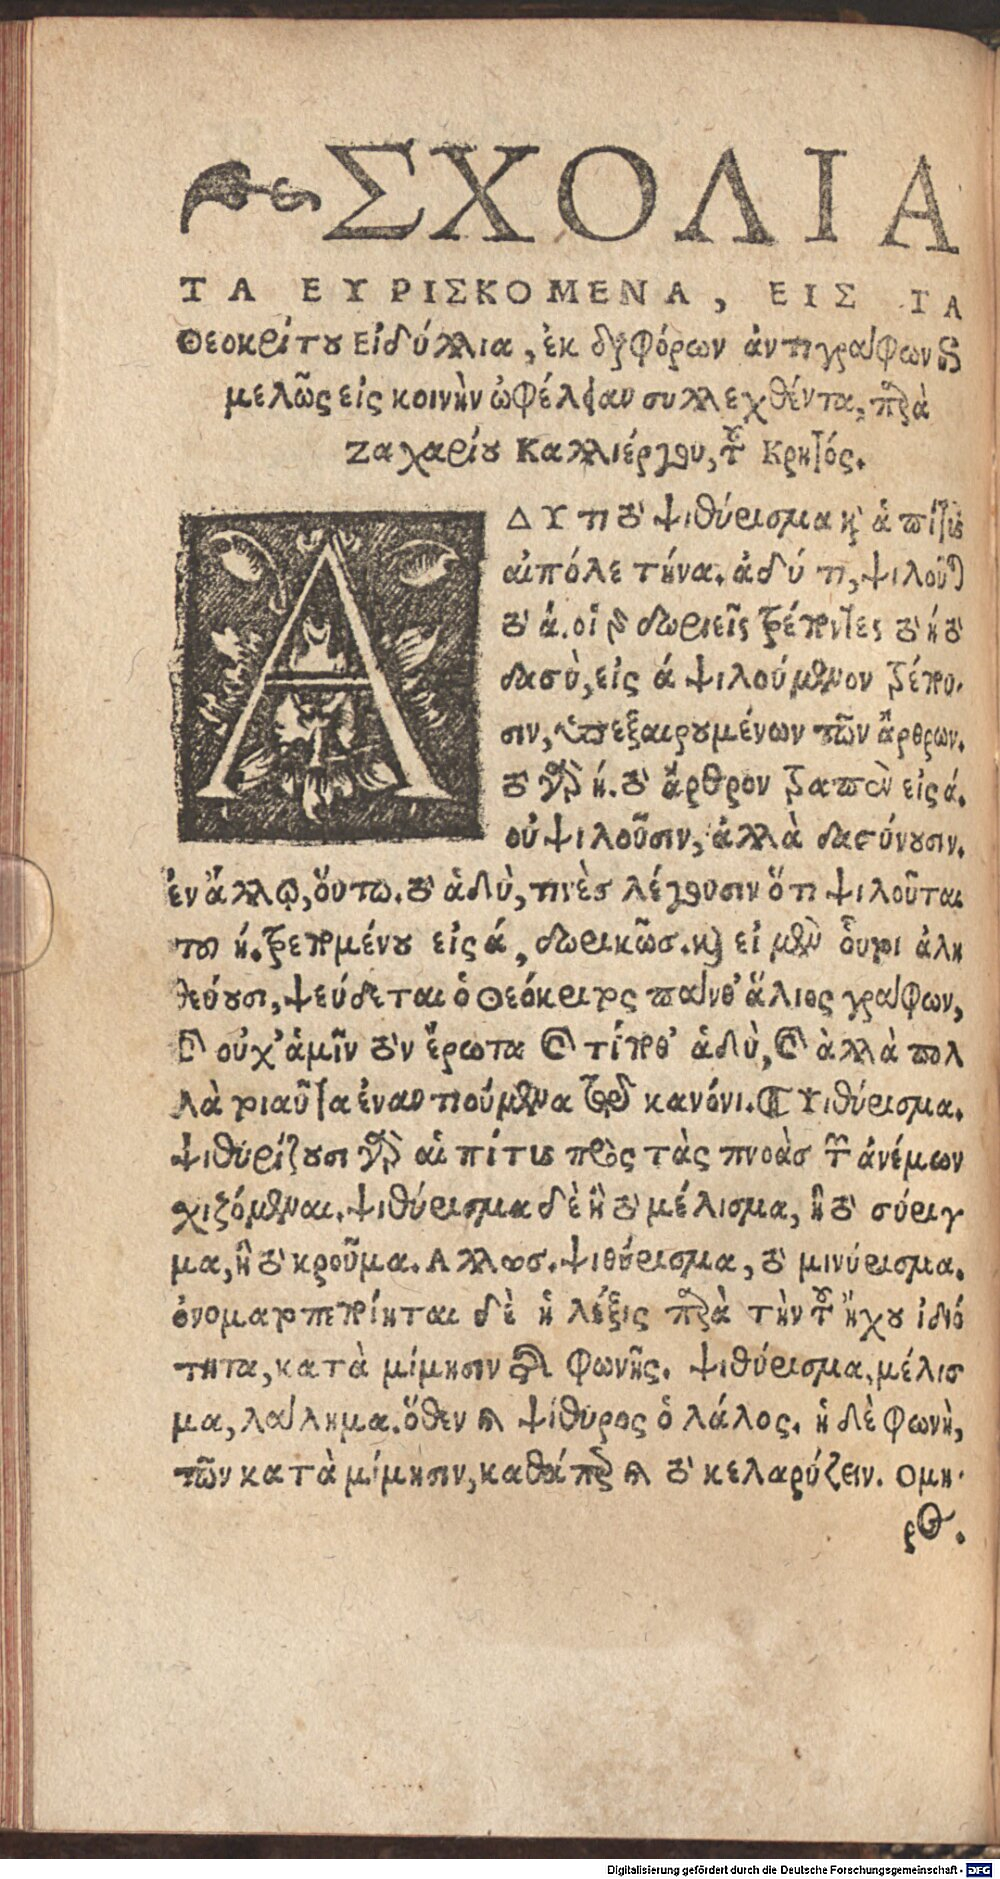 ΣΧΟΛΙΑ
ΤΑ ΕΥΡΙΣΚΟΜΕΝΑ, ΕΙΣ ΤΑ
Θεοκρίτου Εἰδύλλια, ἐκ διαφόρων ἀντιγράφων
μελῶς εἰς κοινὴν ὠφέλειαν συλλεχθέντα, παρὰ
Ζαχαρίου Καλλιέργου, τοῦ Κρητός.
ΑΔΥ τι τὸ ψιθύρισμα καὶ ἁ πίτυς
αἰπόλε τήνα. ἁδύ τι, ψιλοῦται
τὸ ἁ. οἱ γὰρ δωριεῖς τρέποντες τὸ ἡ τὸ
δασὺ, εἰς ἀ ψιλούμενον τρέπου-
σιν, ὑπεξαιρουμένων τῶν ἄρθρων.
τὸ γὰρ ἡ. τὸ ἄρθρον τραπὲν εἰς ἁ.
οὐ ψιλοῦσιν, ἀλλὰ δασύνουσιν.
ἐν ἄλλῳ, οὕτω. τὸ ἁδὺ, τινὲς λέγουσιν ὅτι ψιλοῦται
τοῦ ἡ. τρεπομένου εἰς ἁ, δωρικῶς. καὶ εἰ μὲν οὗτοι ἀλη
θεύουσι, ψεύδεται ὁ Θεόκριτος πάνθ' ἅλιος γράφων,
καὶ οὐχ' ἁμῖν τὸν ἔρωτα καὶ τίποθ' ἁδὺ, καὶ ἀλλὰ πολ
λὰ τοιαῦτα ἐναντιούμενα τῷδε κανόνι. Ψιθύρισμα.
ψιθυρίζουσι γὰρ αἱ πίτυς πρὸς τὰς πνοὰς τῶν ἀνέμων
χιζόμεναι. ψιθύρισμα δὲ ἢ τὸ μέλισμα, ἢ τὸ σύριγ
μα, ἢ τὸ κροῦμα. Αλλως. ψιθύρισμα, τὸ μινύρισμα.
ὀνοματοπεποίηται δὲ ἡ λέξις παρὰ τὴν τοῦ ἤχου ἰδιό
τητα, κατὰ μίμησιν τῆς φωνῆς. ψιθύρισμα, μέλισ
μα, λάλημα. ὅθεν καὶ ψίθυρος ὁ λάλος. ἡ δὲ φωνὴ,
τῶν κατὰ μίμησιν, καθάπερ καὶ τὸ κελαρύζειν. Ομη-
ρος.
Digitalisierung gefördert durch die Deutsche Forschungsgemeinschaft - DFG